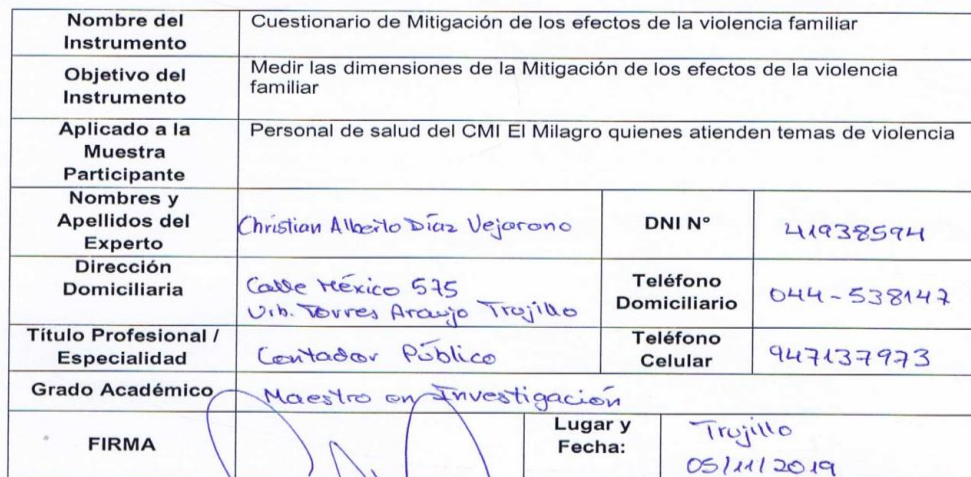 Nombre del Instrumento
Cuestionario de Mitigación de los efectos de la violencia familiar
Objetivo del Instrumento
Medir las dimensiones de la Mitigación de los efectos de la violencia
familiar
Aplicado a la Muestra Participante
Personal de salud del CMI El Milagro quienes atienden temas de violencia
Nombres y Apellidos del Experto
Christian Alberto Díaz Vejarano
DNI N°
41938594
Dirección Domiciliaria
Calle México 575
Urb. Torres Araujo Trujillo
Teléfono Domiciliario
044-538147
Título Profesional / Especialidad
Contador Público
Teléfono Celular
947137973
Grado Académico
Maestro en Investigación
FIRMA
Lugar y Fecha:
Trujillo
05/11/2019